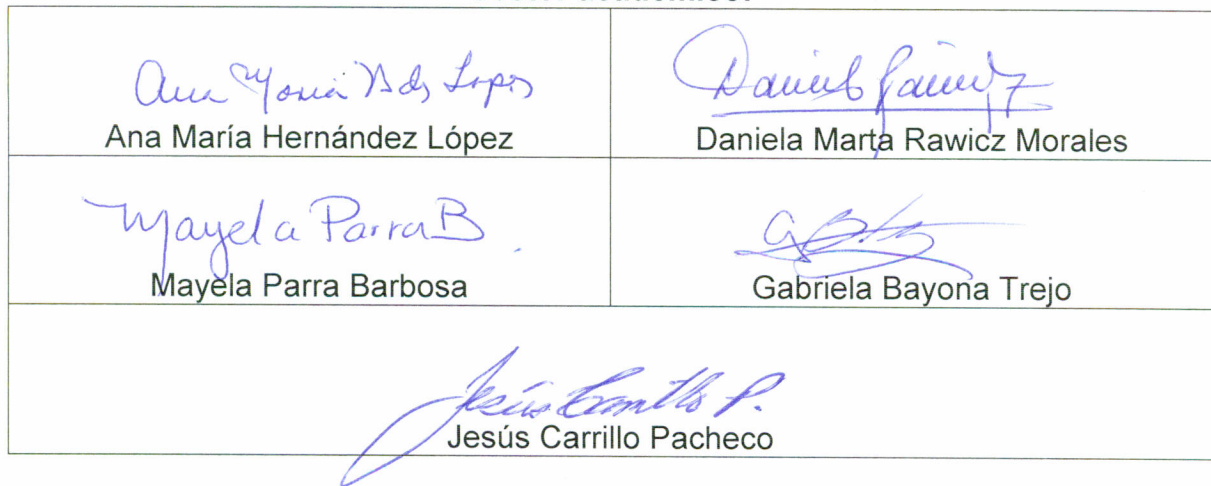 Ana María Hdz López Daniela Rawicz
Ana María Hernández López Daniela Marta Rawicz Morales
Mayela Parra B.
Mayela Parra Barbosa Gabriela Bayona Trejo
Jesús Carrillo P.
Jesús Carrillo Pacheco